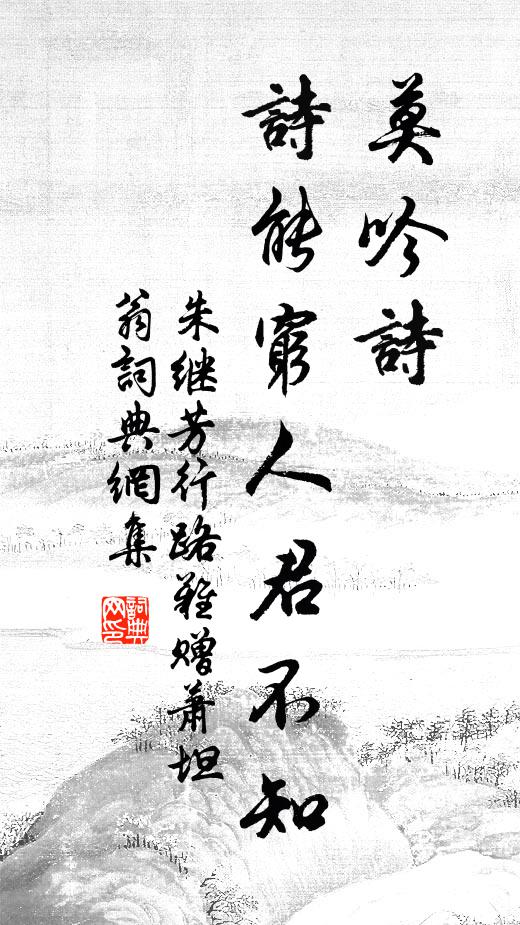 莫吟詩
詩能窮人君不知
朱继芳行路難赠蕭坦
翁詞典網集
詞典
网印